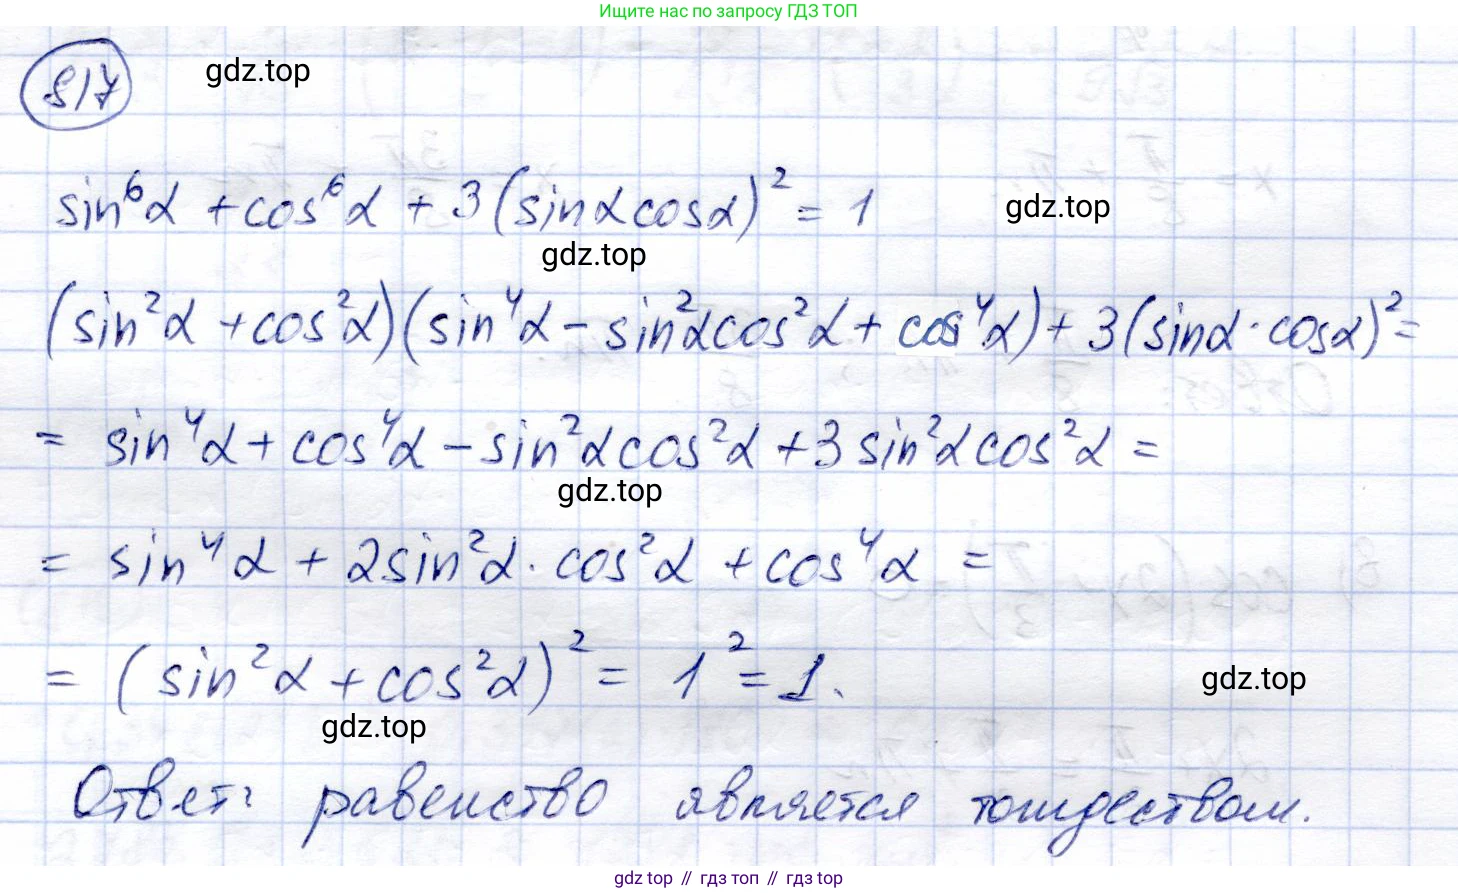 Ищите нас по запросу ГДЗ ТОП
817 gdz.top
sin⁶α + cos⁶α + 3(sinα cosα)² = 1
gdz.top
gdz.top
(sin²α + cos²α)(sin⁴α - sin²α cos²α + cos⁴α) + 3(sinα · cosα)² =
= sin⁴α + cos⁴α - sin²α cos²α + 3 sin²α cos²α =
gdz.top
= sin⁴α + 2sin²α · cos²α + cos⁴α =
= (sin²α + cos²α)² = 1² = 1.
gdz.top
gdz.top
Ответ: равенство является тождеством.
gdz top // гдз топ // гдз top